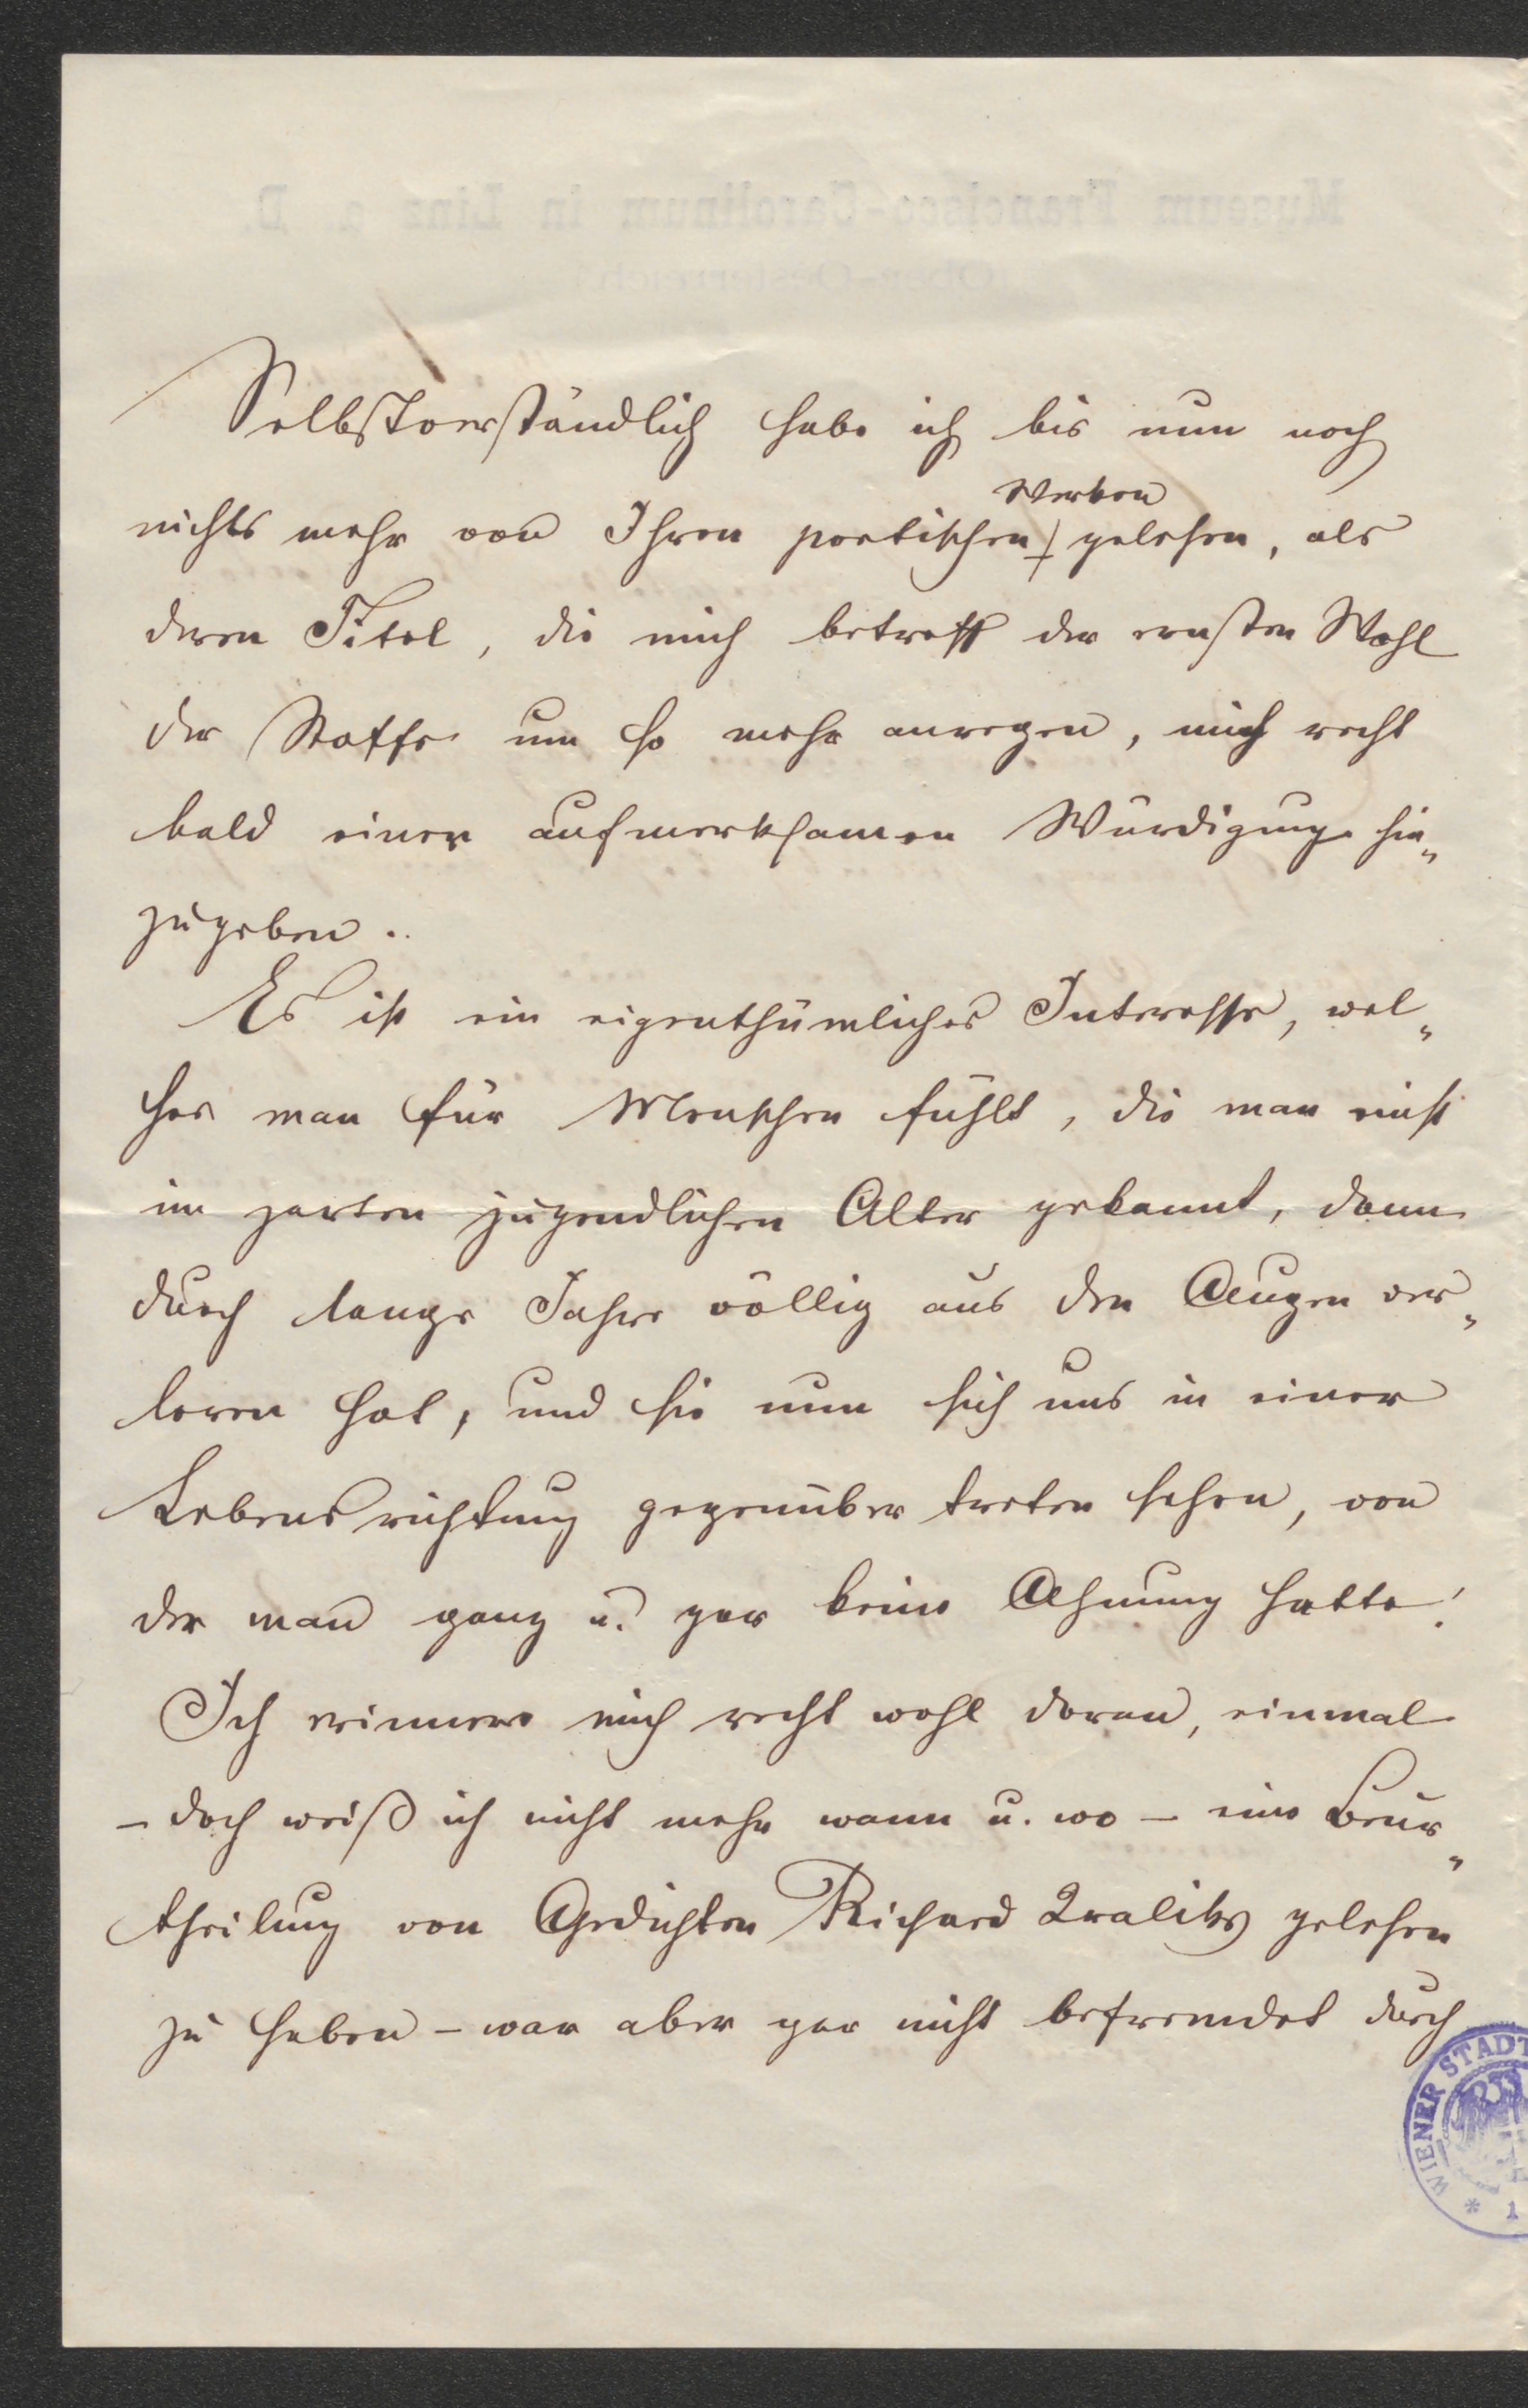 Selbstverständlich habe ich bis nun noch
Werken
nichts mehr von Ihren poetischen gelesen, als
deren Titel, die mich betreff der ernsten Wahl
der Stoffe um so mehr anregen, mich recht
bald einer aufmerksamen Würdigung hin„
zugeben.
Es ist ein eigenthümliches Interesse, wel„
ches man für Menschen fühlt, die man einst
im zarten jugendlichen Alter gekannt, dann
durch lange Jahre völlig aus den Augen ver„
loren hat, und sie nun sich uns in einer
Lebensrichtung gegenüber treten sehen, von
der man ganz u. gar keine Ahnung hatte!
Ich erinnere mich recht wohl daran, einmal
– doch weiß ich nicht mehr wann u. wo – eine Beur„
theilung von Gedichten Richard Kraliks gelesen
zu haben – war aber gar nicht befremdet durch
WIENER STADT
* 1